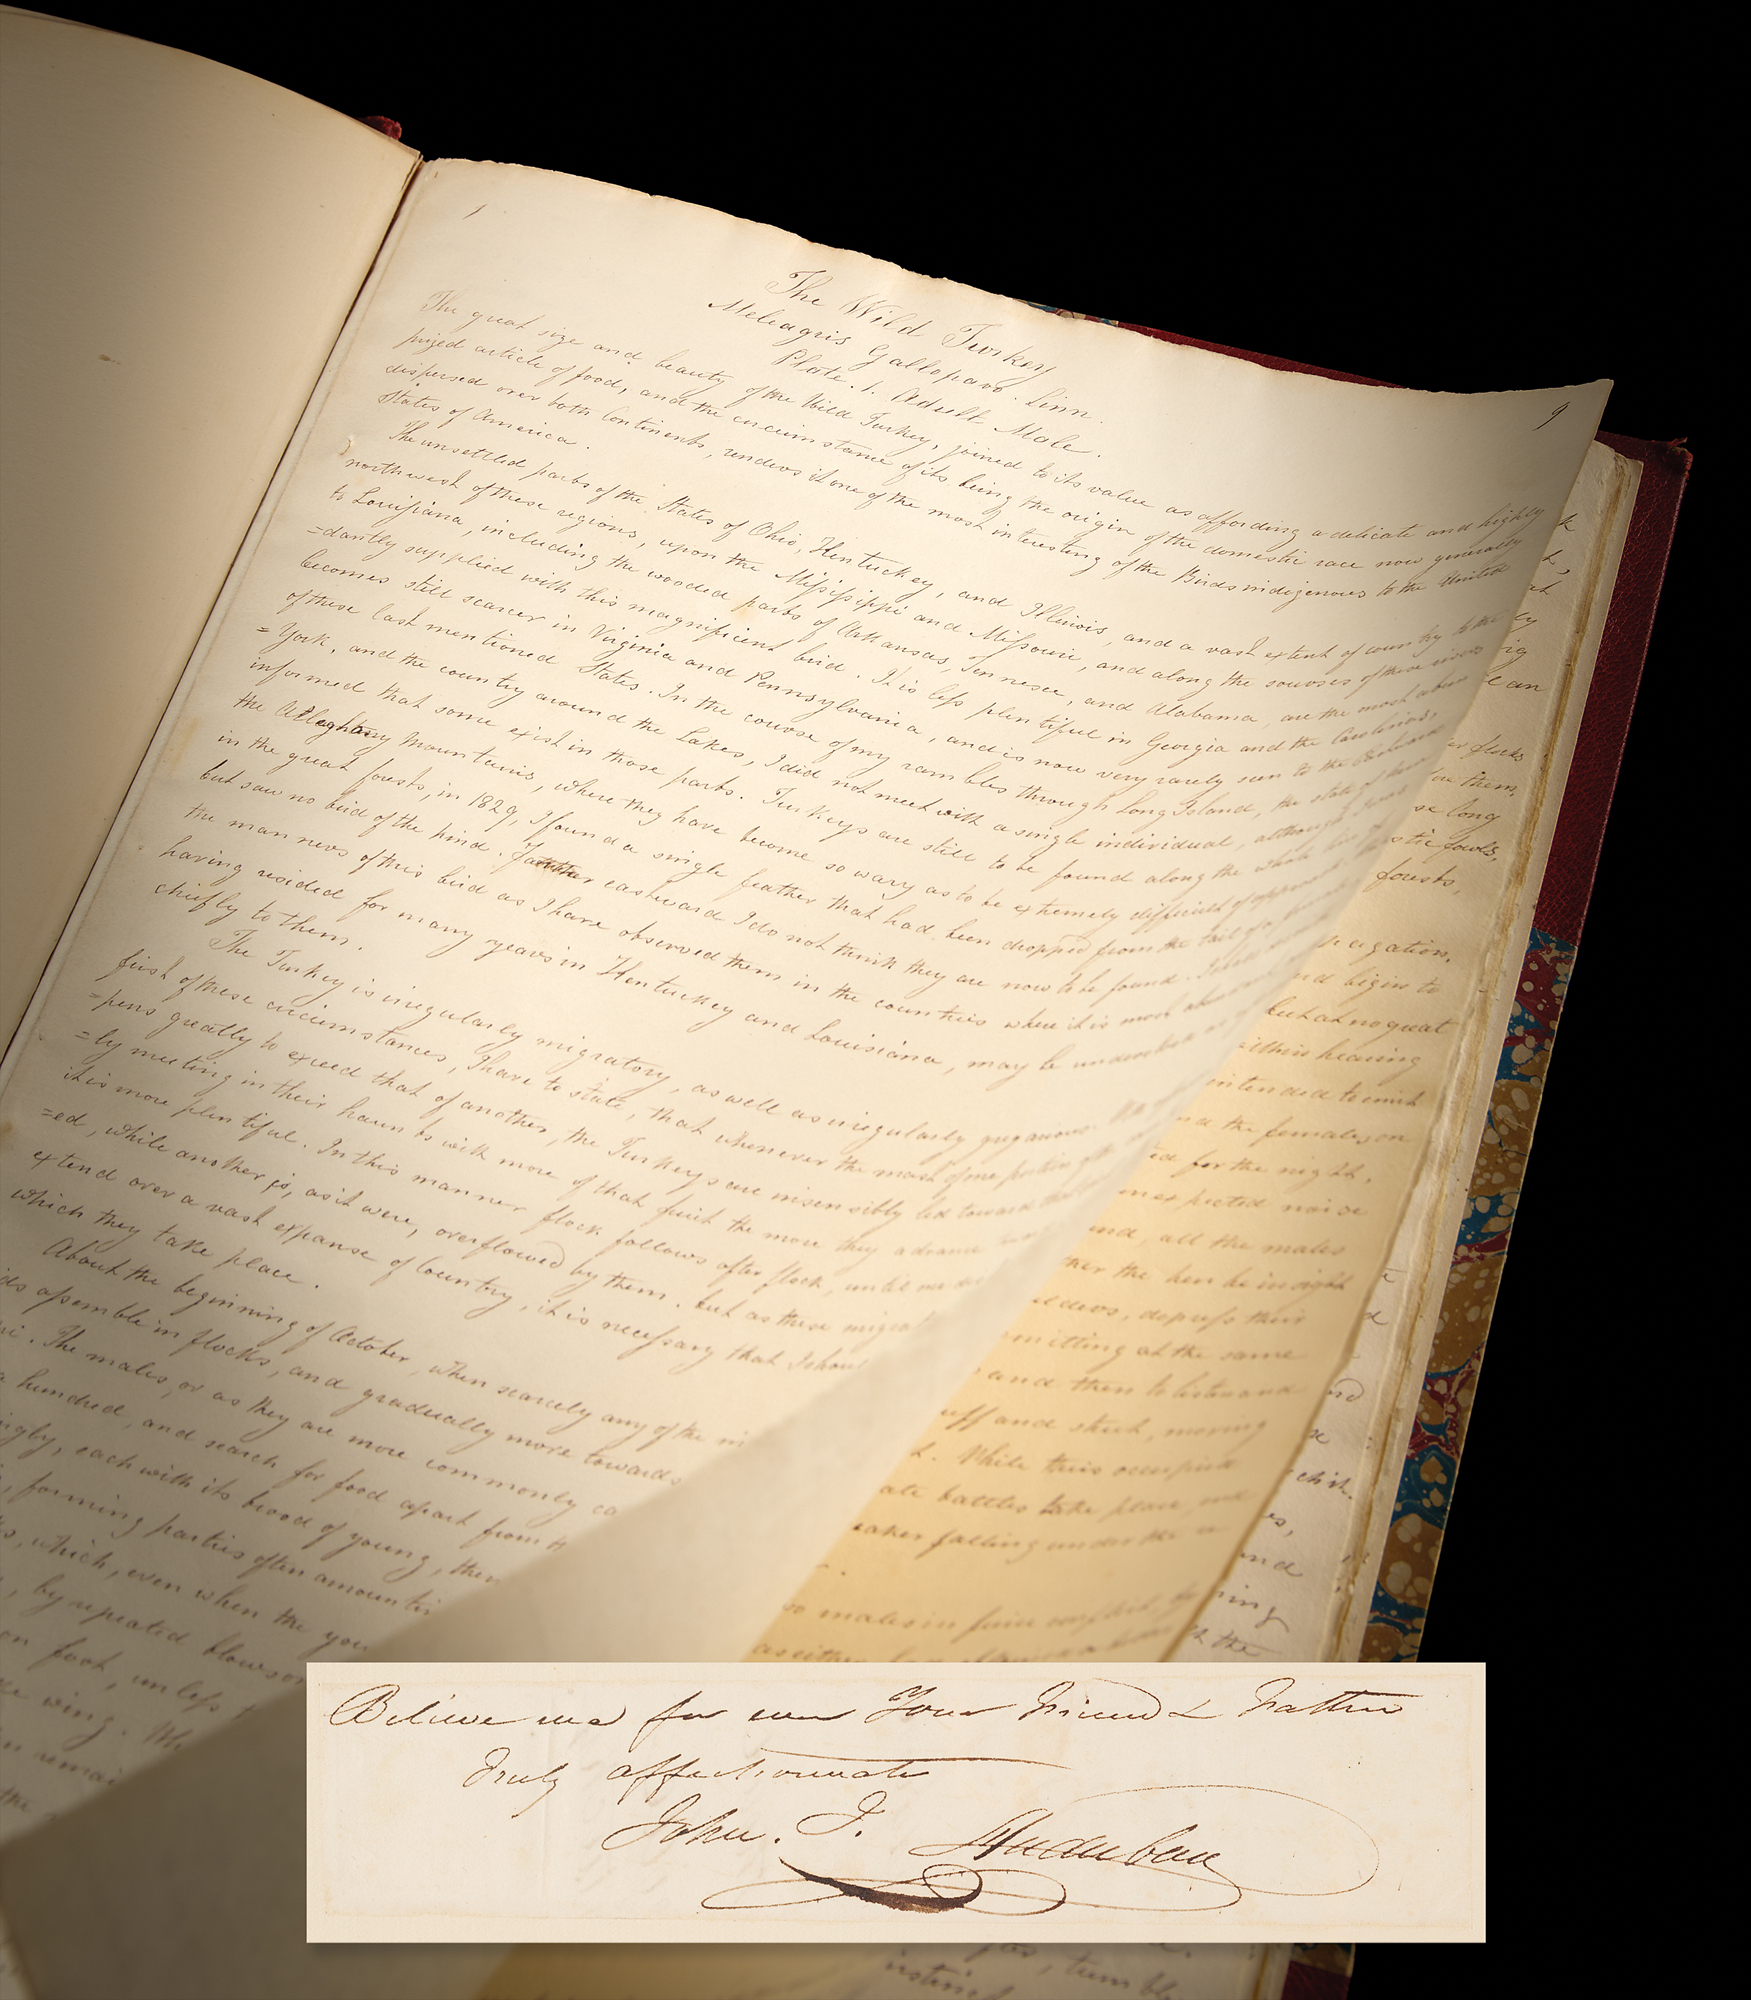 1
9
The Wild Turkey
Meleagris Gallopavo. Linn.
Plate. 1. Adult Male.
The great size and beauty of the Wild Turkey, joined to its value as affording a delicate and highly
prized article of food, and the circumstance of its being the origin of the domestic race now generally
dispersed over both Continents, renders it one of the most interesting of the Birds indigenous to the United
States of America.
The unsettled parts of the States of Ohio, Kentucky, and Illinois, and a vast extent of country to the
northwest of these regions, upon the Mississippi and Missouri, and along the sources of these rivers
to Louisiana, including the wooded parts of Arkansas, Tennesee, and Alabama, are the most abun
=dantly supplied with this magnificent bird. It is less plentiful in Georgia and the Carolinas,
becomes still scarcer in Virginia and Pennsylvania, and is now very rarely seen to the Eastward
of these last mentioned States. In the course of my rambles through Long Island, the state of New
=York, and the country around the Lakes, I did not meet with a single individual, although I was
informed that some exist in those parts. Turkeys are still to be found along the whole line of
the Alleghany Mountains, where they have become so wary as to be extremely difficult of approach.
in the great forests, in 1829, I found a single feather that had been dropped from the tail of
but saw no bird of the kind. Farther eastward I do not think they are now to be found. I shall
the manners of this bird as I have observed them in the countries where it is most abundant
having resided for many years in Kentucky and Louisiana, may be understood as
chiefly to them.
The Turkey is irregularly migratory, as well as irregularly gregarious.
first of these circumstances, I have to state, that whenever the mast of one portion of
=pens greatly to exceed that of another, the Turkeys are insensibly led toward
=ly meeting in their haunts with more of that fruit the more they advance
it is more plentiful. In this manner flock follows after flock, until one
=ed, while another is, as it were, overflowed by them. but as these migrat
extend over a vast expanse of Country, it is necessary that I shoul
which they take place.
About the beginning of October, when scarcely any of the
ds assemble in flocks, and gradually more towards
. The males, or as they are more commonly ca
a hundred, and search for food apart from
ngly, each with its brood of young, then
, forming parties often amountin
s, which, even when the you
, by repeated blows on
on foot, unless
wing.
remai
the
for the night,
unexpected noise
and, all the males
the hen be in sight
depress their
emitting at the same
and then to listen and
uff and strut, moving
. While thus occupied
ate battles take place,
eaker falling under the
males in fierce conflict,
Believe me for ever Your Friend & Father
Truly affectionate
John. J. Audubon